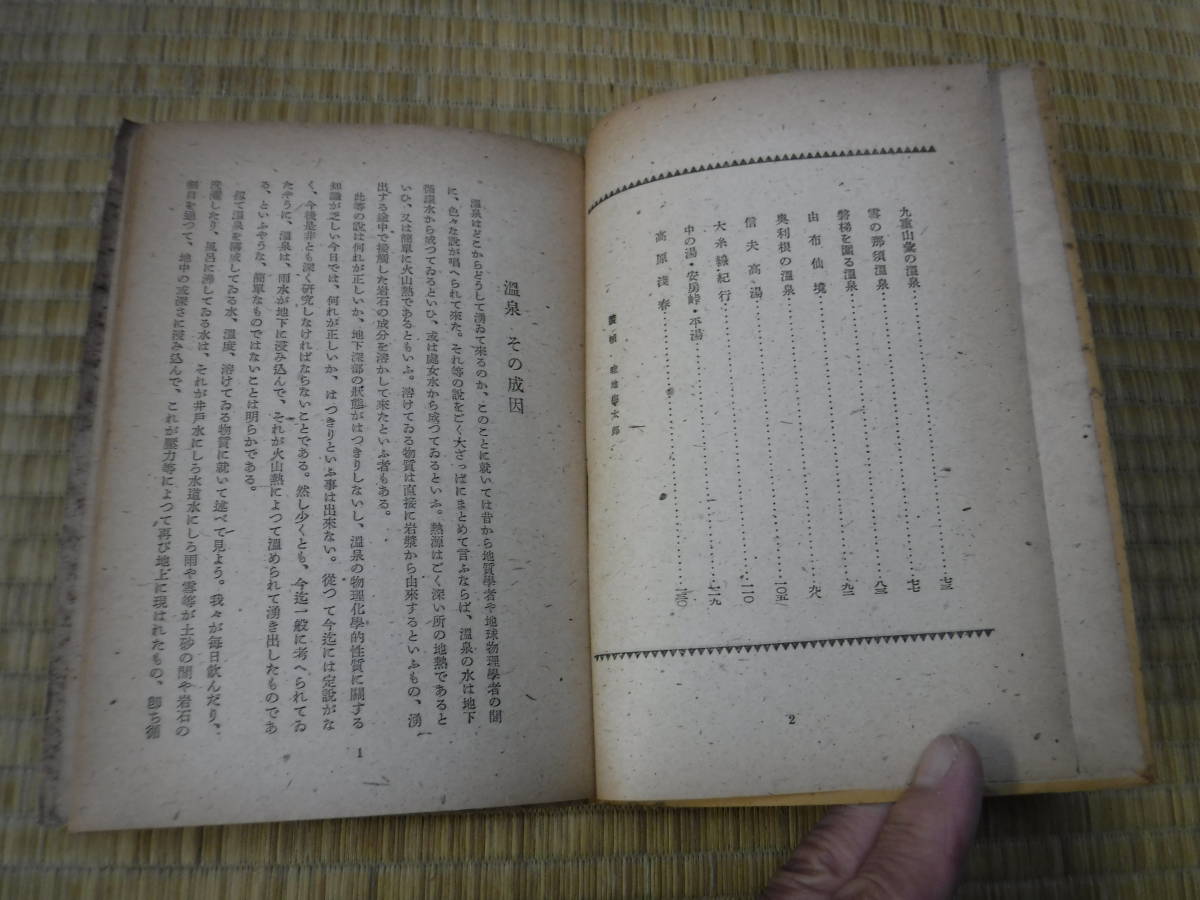 九重山彙の溫泉………七三
雪の那須溫泉………七七
磐梯を圍る溫泉………八三
由布仙境………九二
奥利根の溫泉………九八
信夫高湯………一〇五
大糸線紀行………一一〇
中の湯・安房峠・平湯………一一九
高原淺春………一三〇
2
溫泉 その成因
溫泉はどこからどうして湧ゐて來るのか、このことに就いては昔から地質學者や地球物理學者の間
に、色々な說が唱へられて來た。それ等の說をごく大ざっぱにまとめて言ふならば、溫泉の水は地下
循環水から成つてゐるといひ、或は處女水から成つてゐるといふ。熱源はごく深い所の地熱であると
いひ、又は簡單に火山熱であるともいふ。溶けてゐる物質は直接に岩漿から由來するといふもの、湧
出する途中で接觸した岩石の成分を溶かして來たといふ者もある。
此等の說は何れが正しいか、地下深部の狀態がはつきりしないし、溫泉の物理化學的性質に關する
知識が乏しい今日では、何れが正しいか、はつきりといふ事は出來ない。從つて今迄には定說がな
く、今後是非とも深く硏究しなければならないことである。然し少くとも、今迄一般に考へられてゐ
たやうに、溫泉は、雨水が地下に浸み込んで、それが火山熱によつて溫められて湧き出したものであ
る、といふやうな、簡單なものではないことは明らかである。
扨て溫泉を構成してゐる水、溫度、溶けてゐる物質に就いて述べて見よう。我々が每日飲んだり、
洗濯したり、風呂に沸してゐる水は、それが井戶水にしろ水道水にしろ雨や雪等が土砂の間や岩石の
割目を通つて、地中の或深さに浸み込んで、これが壓力等によつて再び地上に現はれたもの、卽ち循
1